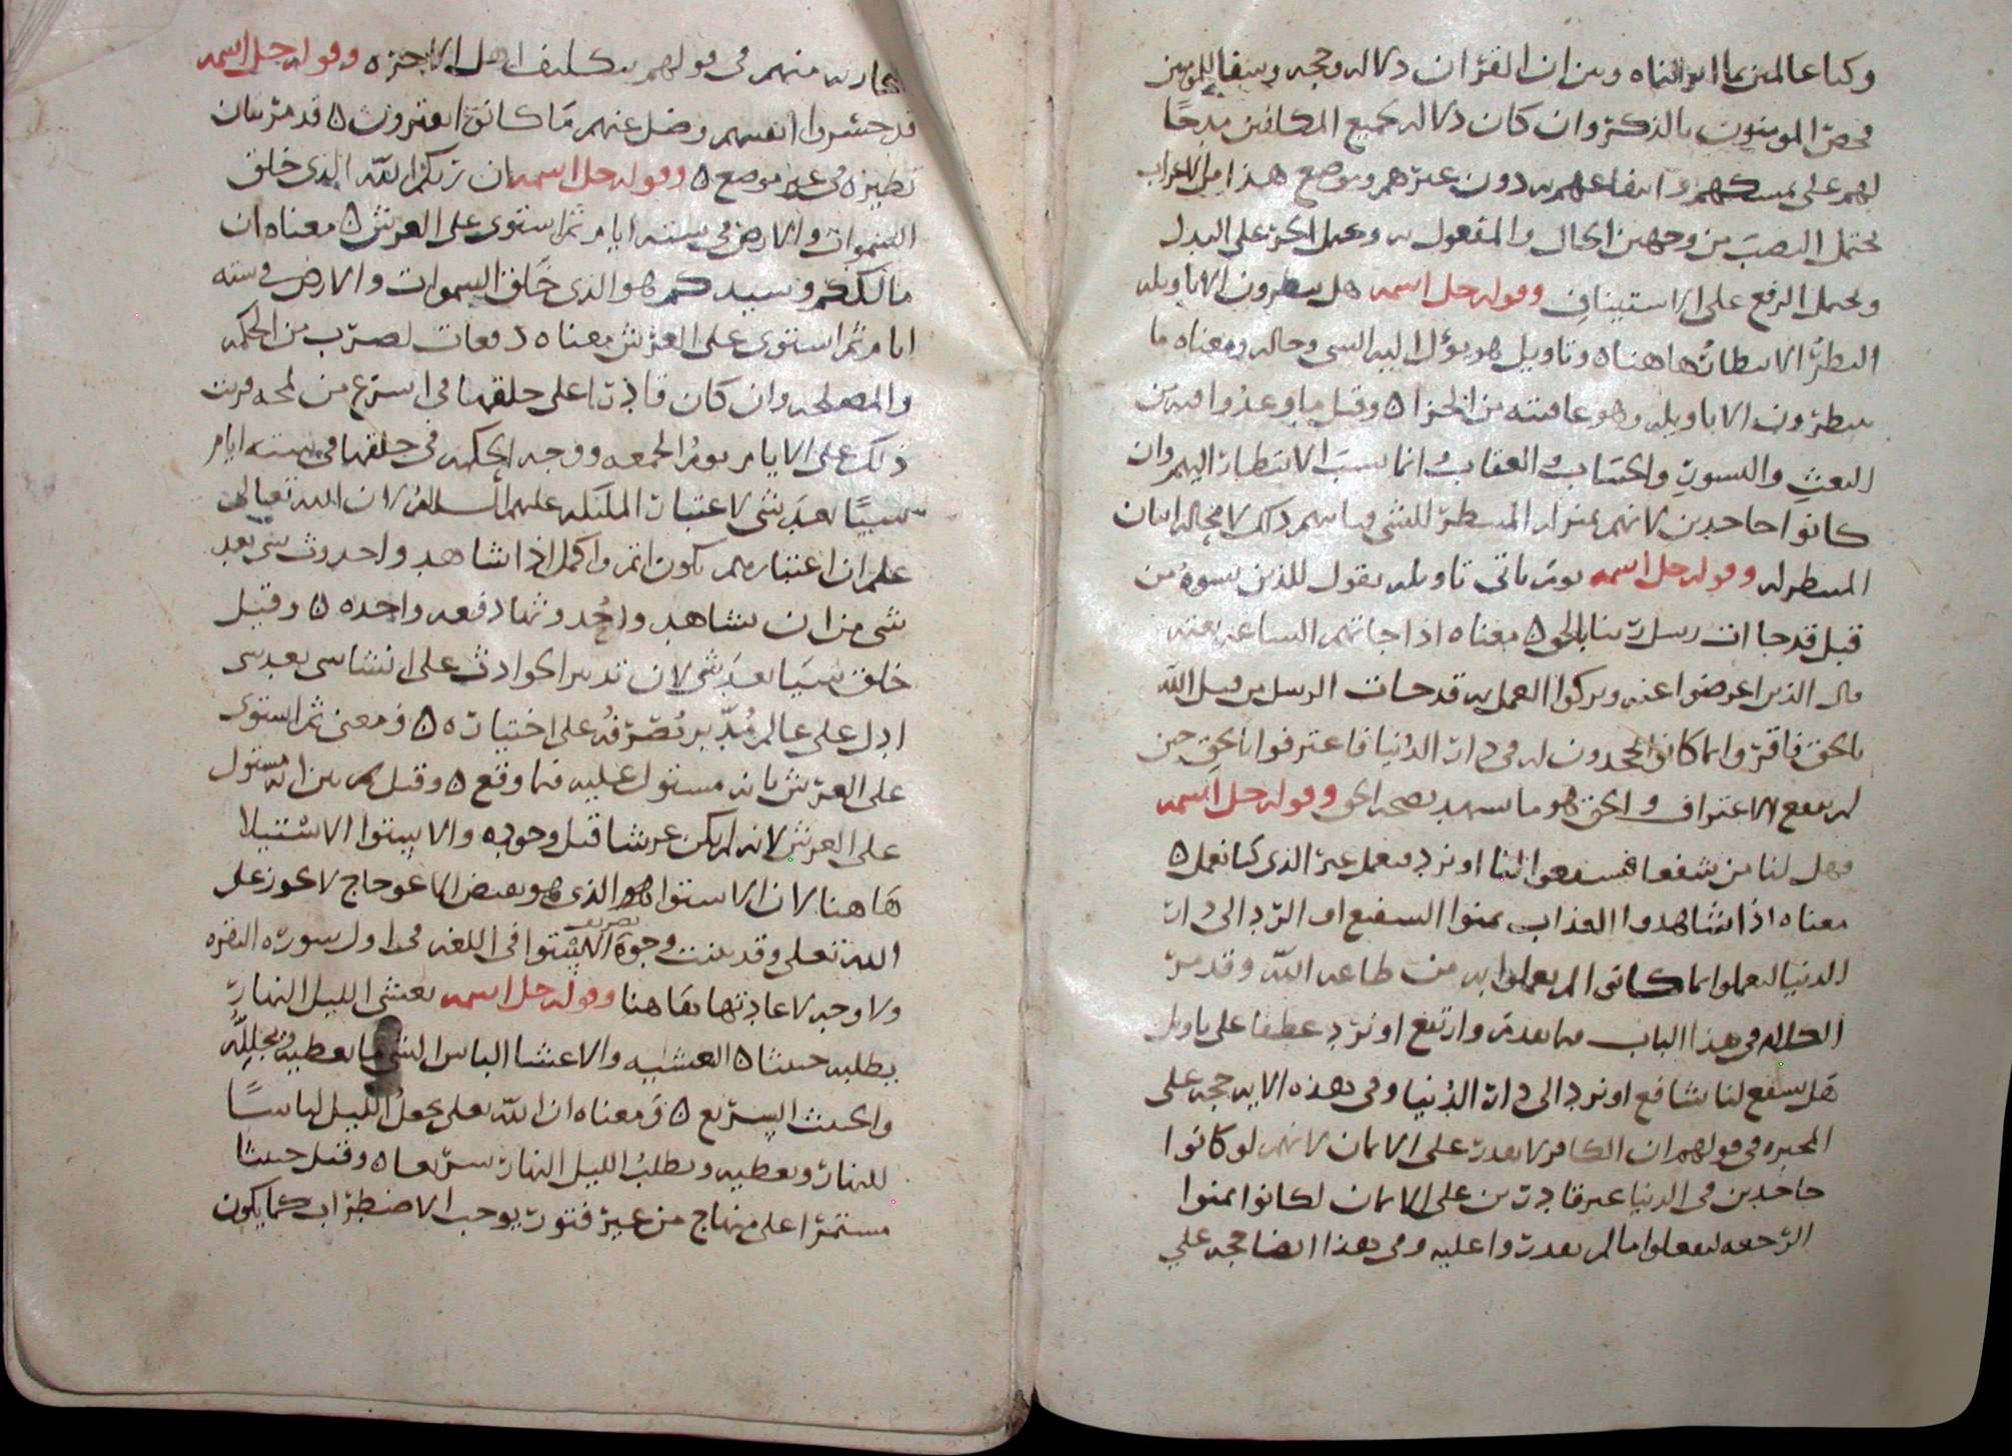 وكنا عالمين بما انزلناه وبين ان القرآن دلاله وحجه وشفا للمومنين
فخص المومنون بالذكر وان كان دلاله لجميع المكلفين مدحًا
لهم على تمسكهم وانتفاعهم به دون غيرهم وموضع هذا من الاعراب
يحتمل النصب من وجهين الحال والمفعول به ويحتمل الجر على البدل
ويحتمل الرفع على الاستيناف وقوله جل اسمه هل ينظرون الا تاويله
النظر الانتظار هاهنا ٥ وتاويل هو يؤل اليه الشي وحاله ومعناه ما
ينظرون الا تاويله وهو عاقبته من الجزا ٥ وقيل ما وعدوا به من
البعث والنشور والحساب والعقاب وانما نسب الانتظار اليهم وان
كانوا جاحدين لانهم بمنزله المنتظر للشي وياتيهم ذلك لا محاله اتيان
المنتظر له وقوله جل اسمه يوم ياتي تاويله يقول الذين نسوه من
قبل قد جات رسل ربنا بالحق ٥ معناه اذا جاتهم الساعه بغته
قال الذين اعرضوا عنه وتركوا العمل به قد جات الرسل من قبل الله
بالحق فاقروا بما كانوا يجحدون له في دار الدنيا فاعترفوا بالحق حين
لم ينفع الاعتراف والحق هو ما شهد بصحه الحق وقوله جل اسمه
فهل لنا من شفعا فيشفعوا لنا او نرد فنعمل غير الذي كنا نعمل ٥
معناه اذا شاهدوا العذاب تمنوا الشفيع او الرد الى دار
الدنيا ليعملوا بما كانوا لم يعملوا به من طاعه الله وقد مر
الدلاله في هذا الباب فيما تقدم وارتفع او نرد عطفا على تاويل
هل يشفع لنا شافع او نرد الى دار الدنيا وفي هذه الايه حجه على
المجبره في قولهم ان الكافر لا يقدر على الايمان لانهم لو كانوا
جاحدين في الدنيا غير قادرين على الايمان لكانوا تمنوا
الرجعه ليفعلوا ما لم يقدروا عليه وفي هذا ايضا حجه على
منهم في قولهم بتكليف اهل الاخره وقوله جل اسمه
قد خسروا انفسهم وضل عنهم ما كانوا يفترون ٥ قد مر بيان
نظيره في غير موضع ٥ وقوله جل اسمه ان ربكم الله الذي خلق
السموات والارض في سته ايام ثم استوى على العرش ٥ معناه ان
مالككم وسيدكم هو الذي خلق السموات والارض في سته
ايام ثم استوى على العرش معناه دفعات لضرب من الحكمه
والمصلحه وان كان قادرا على خلقها في اسرع من لمحه ورتب
ذلك على الايام يوم الجمعه ووجه الحكمه في خلقها في سته ايام
شيئًا بعد شي لاعتبار الملئكه عليهم السلام لان الله تعالى
علم ان اعتبارهم يكون اتم واكمل اذا شاهدوا حدوث شي بعد
شي من ان يشاهدوا حدوثها دفعه واحده ٥ وقيل
خلق شيئا بعد شي لان تدبير الحوادث على انشا شي بعد شي
ادل على عالم مدبر تصرفه على اختياره ٥ ومعنى ثم استوى
على العرش بانه مستول عليه فيما وقع ٥ وقيل ثم بين انه مستول
على العرش لانه لم يكن عرشا قبل وجوده والاستوا الاستيلا
هاهنا لان الاستوا الذي هو نقيض الاعوجاج لا يجوز على
الله تعلى وقد بينت وجوه تصريف الاستوا في اللغه في اول سوره البقره
ولا وجه لاعادتها هاهنا وقوله جل اسمه يغشى الليل النهار
يطلبه حثيثا ٥ التغشيه والاغشا الباس الشي ما يغطيه ويجلله
والحثيث السريع ٥ ومعناه ان الله تعلى يجعل الليل لباسًا
للنهار ويغطيه ويطلب الليل النهار سريعا ٥ وقيل حثيثا
مستمرا على منهاج من غير فتور يوجب الاضطراب كما يكون